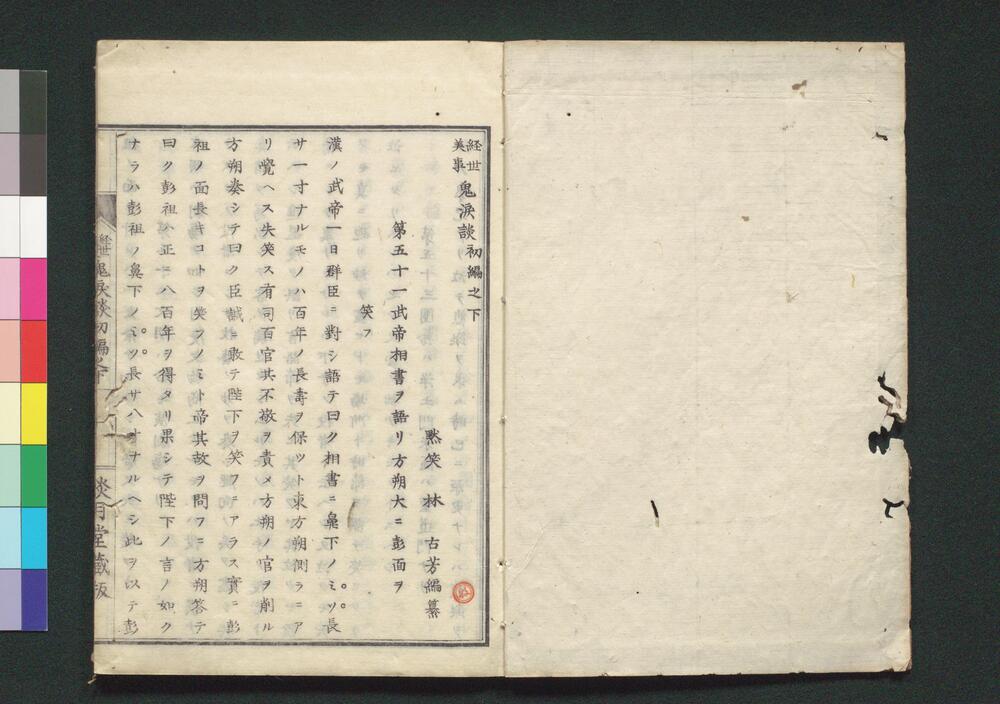 経世美事 鬼涙談初編之下
黙笑 林 古芳編纂
第五十一武帝相書ヲ語リ方朔大ニ彭面ヲ
笑フ
漢ノ武帝一日群臣ニ對シ語テ曰ク相書ニ鼻下ノミゾ長
サ一寸ナルモノハ百年ノ長壽ヲ保ツト東方朔側ラニア
リ覺ヘス失笑ス有司百官其不敬ヲ責メ方朔ノ官ヲ削ル
方朔奏シテ曰ク臣誠ニ敢テ陛下ヲ笑フニアラス實ニ彭
祖ノ面長キコトヲ笑フノミト帝其故ヲ問フニ方朔答テ
曰ク彭祖ハ正ニ八百年ヲ得タリ果シテ陛下ノ言ノ如ク
ナラハ彭祖ノ鼻下ノミゾ長サ八寸ナルヘシ此ヲ以テ彭
経世鬼涙談初編之下
談月堂蔵版